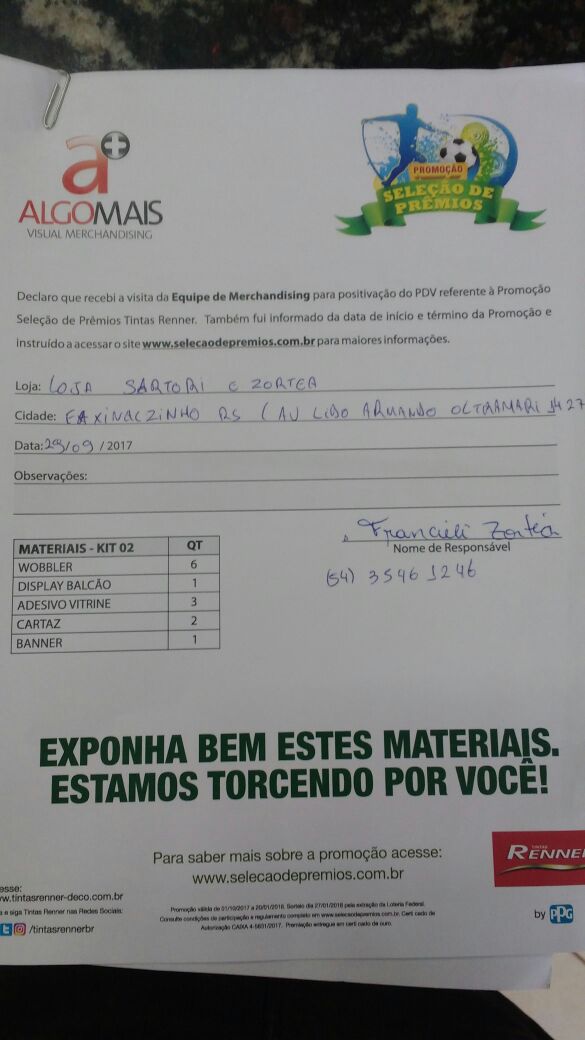 a+
ALGOMAIS
VISUAL MERCHANDISING
PROMOÇÃO
SELEÇÃO DE
PRÊMIOS
Declaro que recebi a visita da Equipe de Merchandising para positivação do PDV referente à Promoção
Seleção de Prêmios Tintas Renner. Também fui informado da data de início e término da Promoção e
instruído a acessar o site www.selecaodepremios.com.br para maiores informações.
Loja: LOJA SARTORI E ZORTEA
Cidade: FAXINALZINHO RS (AU LIDO ARMANDO OLTRAMARI 1427
Data: 29/09/2017
Observações:
Francieli Zortéa
Nome de Responsável
(54) 3546 1246
MATERIAIS - KIT 02 QT
WOBBLER 6
DISPLAY BALCÃO 1
ADESIVO VITRINE 3
CARTAZ 2
BANNER 1
EXPONHA BEM ESTES MATERIAIS.
ESTAMOS TORCENDO POR VOCÊ!
Para saber mais sobre a promoção acesse:
www.selecaodepremios.com.br
TINTAS
RENNER
esse:
w.tintasrenner-deco.com.br
a e siga Tintas Renner nas Redes Sociais:
/tintasrennerbr
Promoção válida de 01/10/2017 a 20/01/2018. Sorteio dia 27/01/2018 pela extração da Loteria Federal.
Consulte condições de participação e regulamento completo em www.selecaodepremios.com.br. Certi cado de
Autorização CAIXA 4-5631/2017. Premiação entregue em certi cado de ouro.
by PPG